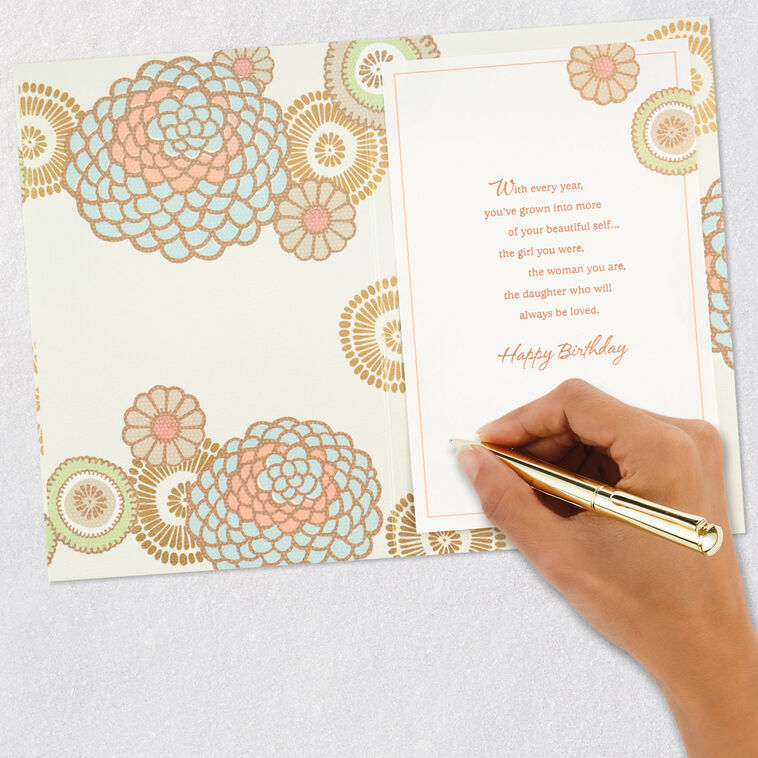 With every year,
you've grown into more
of your beautiful self...
the girl you were,
the woman you are,
the daughter who will
always be loved.
Happy Birthday